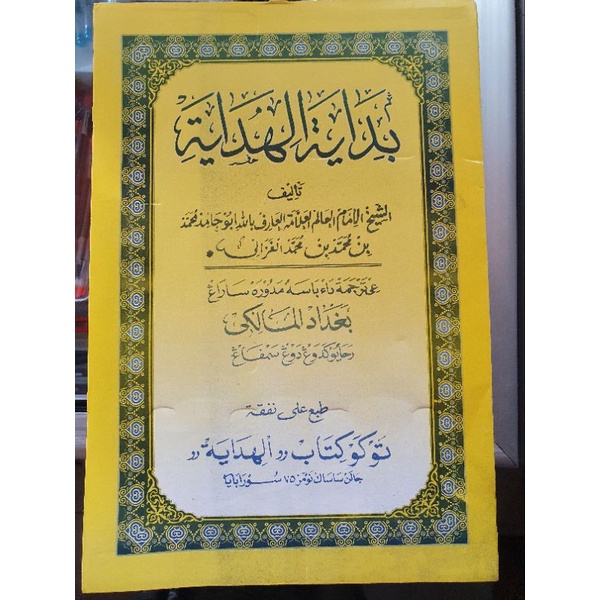 بداية الهداية
تأليف
الشيخ الإمام العالم العلامة العارف بالله ابو حامد محمد
بن محمد بن محمد الغزالي
باسه مدوره ساراڠ
بغداد المالكى
دوڠ سمفاڠ
طبع على نفقة
توكو كتاب الهداية
جالن ساساك نومر ٧٥ سورابايا